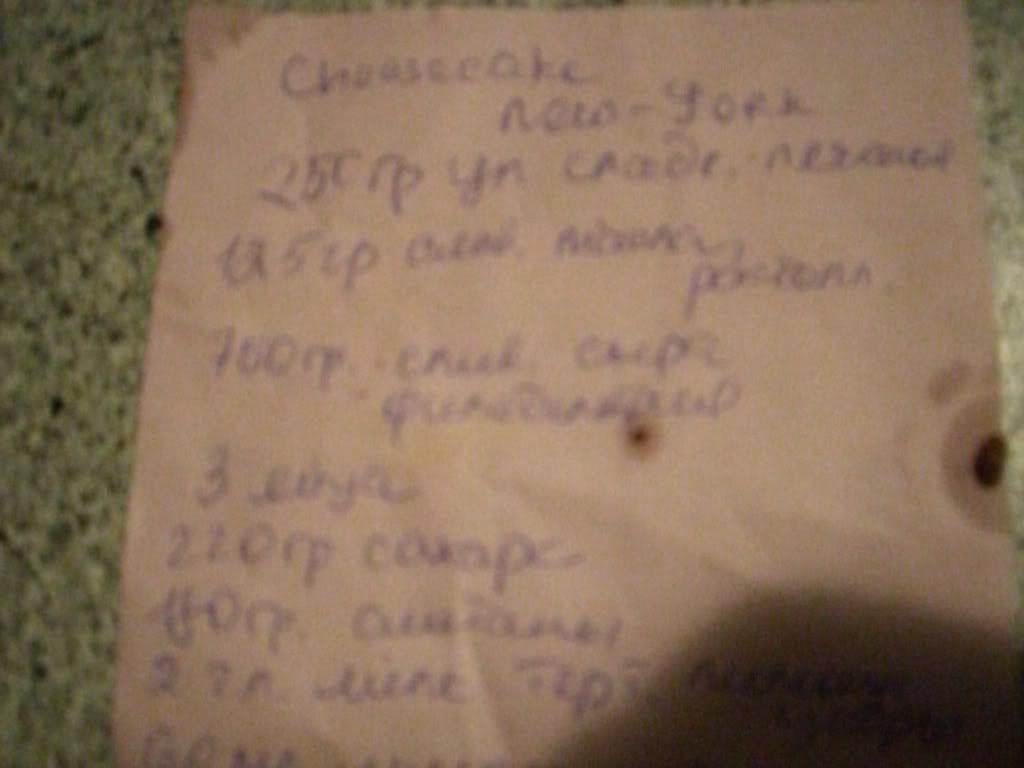 Cheesecake
New-York
250 гр уп сладк. печенья
125 гр слив. масла,
растопл.
700 гр. слив. сыра
филадельфия
3 яйца
220 гр сахара
гр. сметаны
2 ч л. мелк терт
цедры